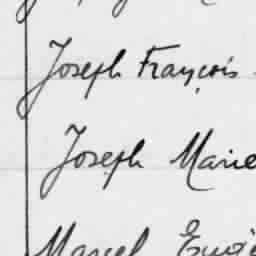 Joseph François
Joseph Marie
Marcel